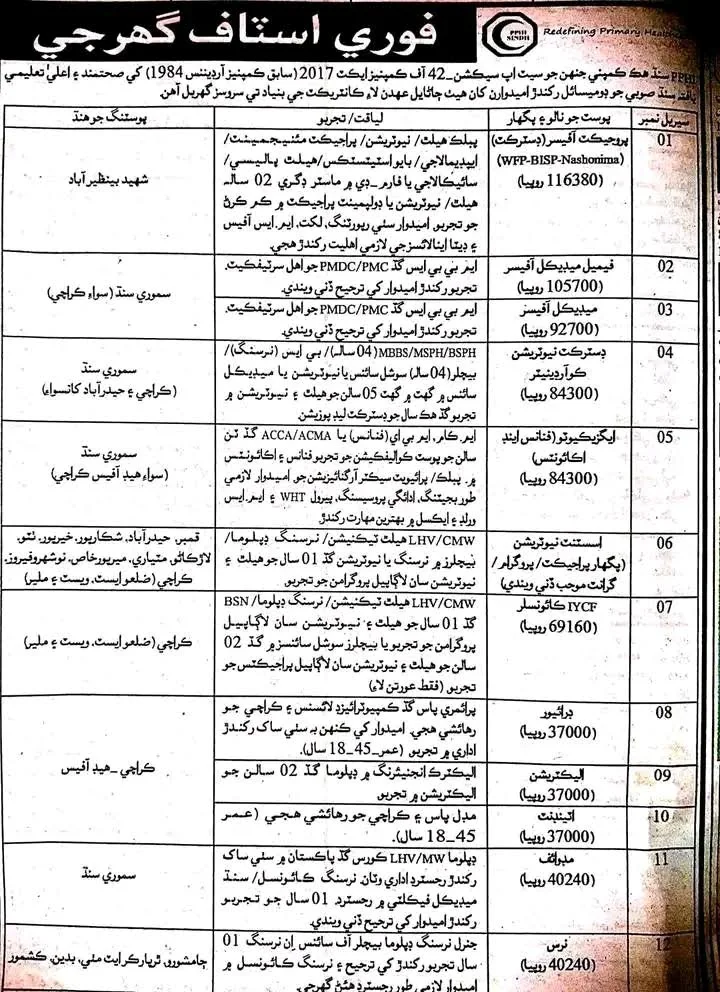 فوري اسٽاف گهرجي
PPHI
SINDH
Redefining Primary Health
PPHI سنڌ هڪ ڪمپني جنهن جو سيٽ اپ سيڪشن_42 آف ڪمپنيز ايڪٽ 2017 (سابق ڪمپنيز آرڊيننس 1984) کي صحتمند ۽ اعليٰ تعليمي
يافته سنڌ صوبي جو ڊوميسائل رکندڙ اميدوارن کان هيٺ ڄاڻايل عهدن لاءِ ڪانٽريڪٽ جي بنياد تي سروسز گهربل آهن.
سيريل نمبر
پوسٽ جو نالو ۽ پگهار
لياقت/ تجربو
پوسٽنگ جو هنڌ
01
پروجيڪٽ آفيسر (ڊسٽرڪٽ)
(WFP-BISP-Nashonima)
(116380 روپيا)
پبلڪ هيلٿ/ نيوٽريشن/ پراجيڪٽ مئنيجمينٽ/
ايپيڊمالاجي/ بايو اسٽيٽسٽڪس/ هيلٿ پاليسي/
سائيڪالاجي يا فارم_ڊي ۾ ماسٽر ڊگري 02 سالہ
هيلٿ/ نيوٽريشن يا ڊولپمينٽ پراجيڪٽ ۾ ڪم ڪرڻ
جو تجربو. اميدوار سٺي رپورٽنگ، لکت، ايم.ايس آفيس
۽ ڊيٽا اينالائسز جي لازمي اهليت رکندڙ هجي.
شهيد بينظير آباد
02
فيميل ميڊيڪل آفيسر
(105700 روپيا)
ايم بي بي ايس گڏ PMDC/PMC جو اهل سرٽيفڪيٽ.
تجربو رکندڙ اميدوار کي ترجيح ڏني ويندي.
سموري سنڌ (سواءِ ڪراچي)
03
ميڊيڪل آفيسر
(92700 روپيا)
ايم بي بي ايس گڏ PMDC/PMC جو اهل سرٽيفڪيٽ.
تجربو رکندڙ اميدوار کي ترجيح ڏني ويندي.
04
ڊسٽرڪٽ نيوٽريشن
ڪوآرڊينيٽر
(84300 روپيا)
MBBS/MSPH/BSPH (04 سالہ)/ بي ايس (نرسنگ)/
بيچلر (04 سالہ) سوشل سائنس يا نيوٽريشن يا ميڊيڪل
سائنس ۾ گهٽ ۾ گهٽ 05 سالن جو هيلٿ ۽ نيوٽريشن ۾
تجربو گڏ هڪ سال جو ڊسٽرڪٽ ليڊ پوزيشن.
سموري سنڌ
(ڪراچي ۽ حيدرآباد کانسواءِ)
05
ايگزيڪيوٽو (فنانس اينڊ
اڪائونٽس)
(84300 روپيا)
ايم.ڪام، ايم بي اي (فنانس) يا ACCA/ACMA گڏ ٽن
سالن جو پوسٽ ڪواليفڪيشن جو تجربو فنانس ۽ اڪائونٽس
۾. پبلڪ/ پرائيويٽ سيڪٽر آرگنائيزيشن جو اميدوار لازمي
طور بجيٽنگ، ادائگي پروسيسنگ، پيرول WHT ۽ ايم.ايس
ورلڊ ۽ ايڪسل ۾ بهترين مهارت رکندڙ.
سموري سنڌ
(سواءِ هيڊ آفيس ڪراچي)
06
اسسٽنٽ نيوٽريشن
(پگهار پراجيڪٽ/ پروگرام/
گرانٽ موجب ڏني ويندي)
LHV/CMW هيلٿ ٽيڪنيشن/ نرسنگ ڊپلوما/
بيچلرز ۾ نرسنگ يا نيوٽريشن گڏ 01 سال جو هيلٿ ۽
نيوٽريشن سان لاڳاپيل پروگرامن جو تجربو.
قمبر، حيدرآباد، شڪارپور، خيرپور، ٺٽو،
لاڙڪاڻو، مٽياري، ميرپورخاص، نوشهروفيروز،
ڪراچي (ضلعو ايسٽ، ويسٽ ۽ ملير)
07
IYCF ڪائونسلر
(69160 روپيا)
LHV/CMW هيلٿ ٽيڪنيشن/ نرسنگ ڊپلوما/ BSN
گڏ 01 سال جو هيلٿ ۽ نيوٽريشن سان لاڳاپيل
پروگرامن جو تجربو يا بيچلرز سوشل سائنسز ۾ گڏ 02
سالن جو هيلٿ ۽ نيوٽريشن سان لاڳاپيل پراجيڪٽس جو
تجربو (فقط عورتن لاءِ)
ڪراچي (ضلعو ايسٽ، ويسٽ ۽ ملير)
08
ڊرائيور
(37000 روپيا)
پرائمري پاس گڏ ڪمپيوٽرائيزڊ لائسنس ۽ ڪراچي جو
رهائشي هجي. اميدوار کي ڪنهن بہ سٺي ساک رکندڙ
اداري ۾ تجربو (عمر_45_18 سال).
ڪراچي_هيڊ آفيس
09
اليڪٽريشن
(37000 روپيا)
اليڪٽرڪ انجنيئرنگ ۾ ڊپلوما گڏ 02 سالن جو
اليڪٽريشن ۾ تجربو.
10
اٽينڊنٽ
(37000 روپيا)
مڊل پاس ۽ ڪراچي جو رهائشي هجي (عمر
45_18 سال).
11
مڊوائف
(40240 روپيا)
ڊپلوما LHV/MW ڪورس گڏ پاڪستان ۾ سٺي ساک
رکندڙ رجسٽرڊ اداري وٽان. نرسنگ ڪائونسل/ سنڌ
ميڊيڪل فيڪلٽي ۾ رجسٽرڊ. 01 سال جو تجربو
رکندڙ اميدوار کي ترجيح ڏني ويندي.
سموري سنڌ
12
نرس
(40240 روپيا)
جنرل نرسنگ ڊپلوما بيچلر آف سائنس اِن نرسنگ 01
سال تجربو رکندڙ کي ترجيح ۽ نرسنگ ڪائونسل ۾
اميدوار لازمي طور رجسٽرڊ هئڻ گهرجي.
ڄامشورو، ٿرپارڪر ايٽ مٺي، بدين، ڪشمور